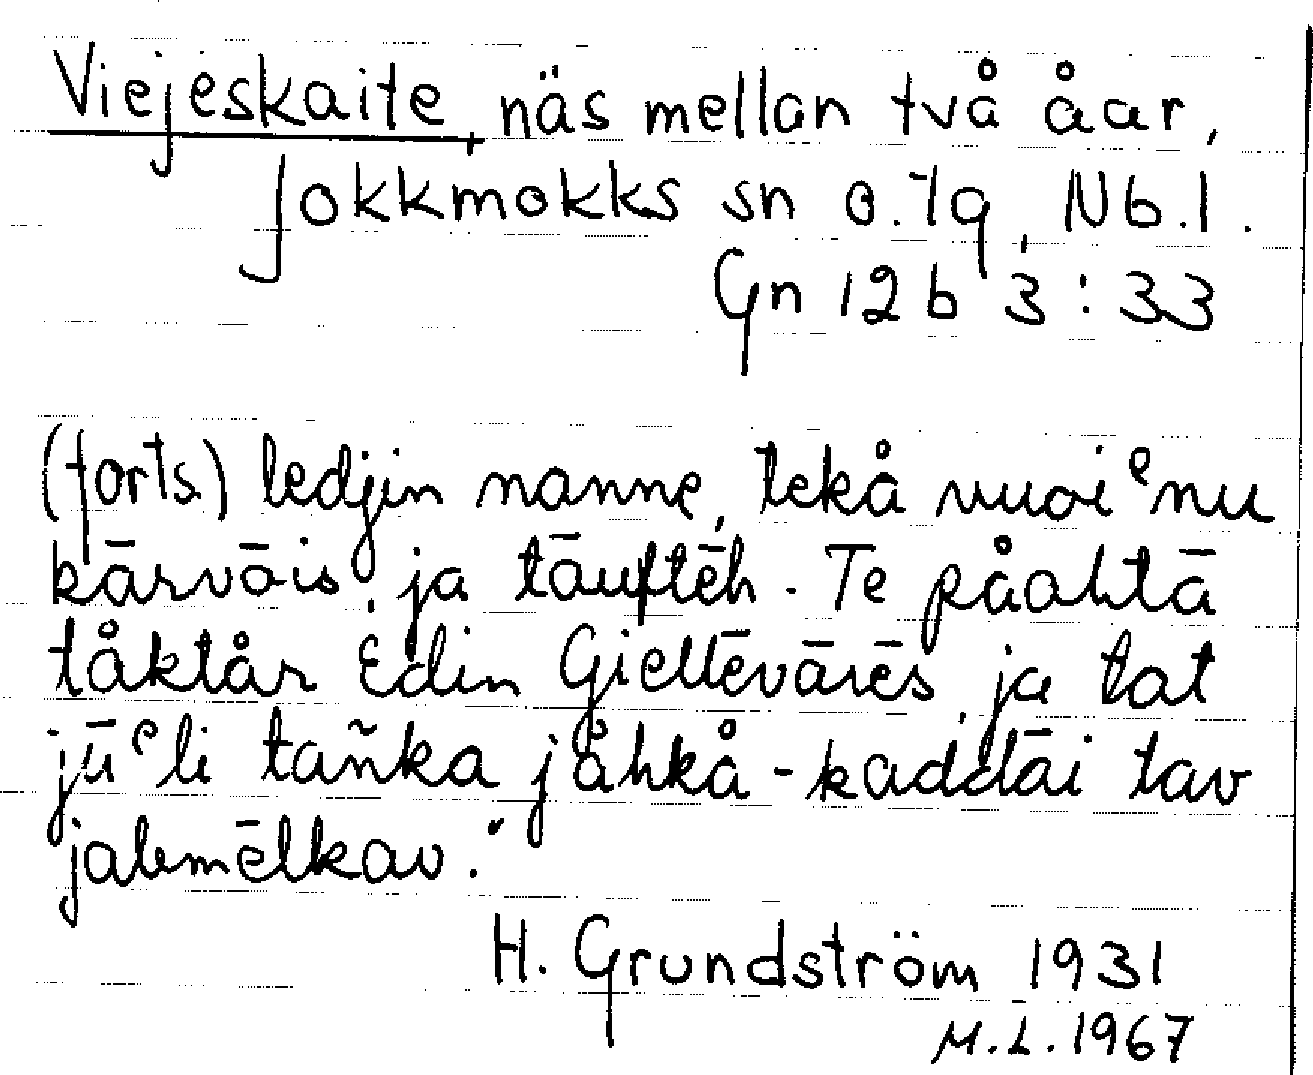 Viejeskaite, näs mellan två åar,
Jokkmokks sn o. lq, Nb.l.
Gn 12 b 3:33
(forts) ledjin nanne, tekå vuoiʿnu
kārvōis, ja tāuftēh. Te påahtā
tåktår Edin Giellēvārēs, ja tat
jūʿli tañka jåhkå-kaddāi tav
jabmēlkav."
H. Grundström 1931
M.L. 1967